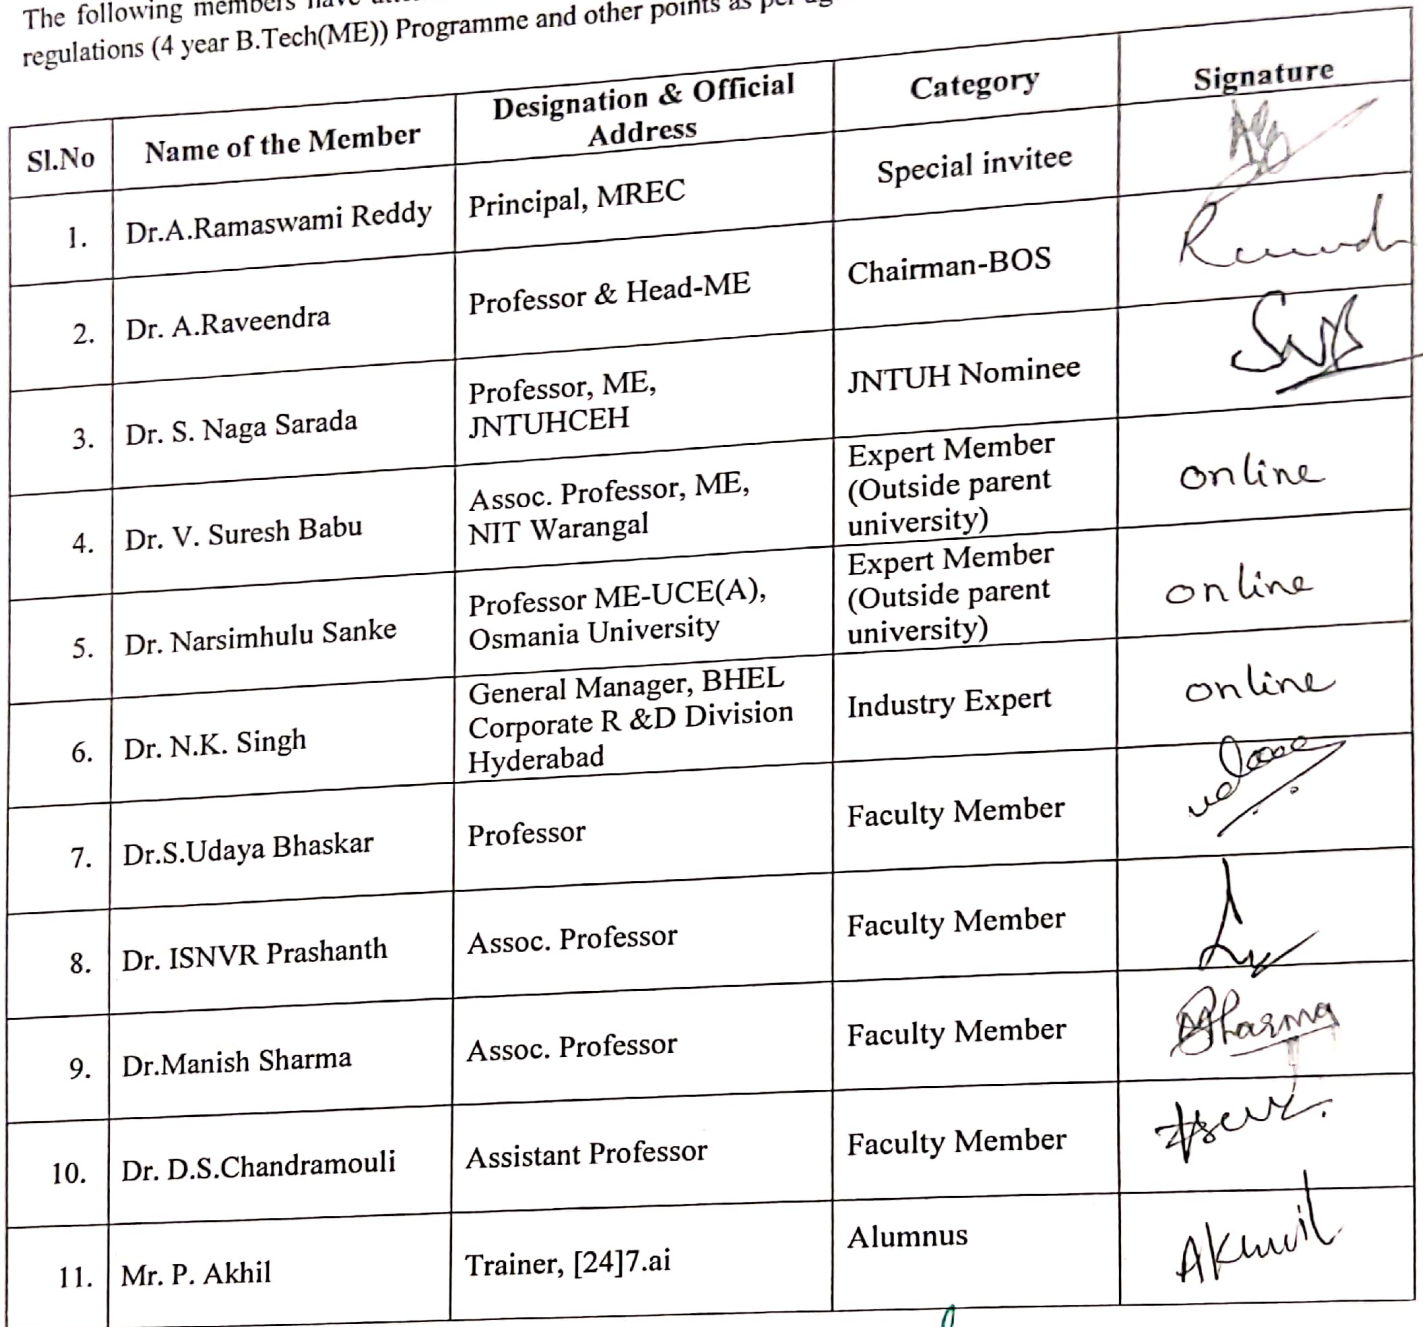 The following members have
regulations (4 year B.Tech(ME)) Programme and other points as per
Sl.No Name of the Member Designation & Official Address Category Signature
1. Dr.A.Ramaswami Reddy Principal, MREC Special invitee
2. Dr. A.Raveendra Professor & Head-ME Chairman-BOS
3. Dr. S. Naga Sarada Professor, ME, JNTUHCEH JNTUH Nominee
4. Dr. V. Suresh Babu Assoc. Professor, ME, NIT Warangal Expert Member (Outside parent university) online
5. Dr. Narsimhulu Sanke Professor ME-UCE(A), Osmania University Expert Member (Outside parent university) online
6. Dr. N.K. Singh General Manager, BHEL Corporate R &D Division Hyderabad Industry Expert online
7. Dr.S.Udaya Bhaskar Professor Faculty Member
8. Dr. ISNVR Prashanth Assoc. Professor Faculty Member
9. Dr.Manish Sharma Assoc. Professor Faculty Member Sharma
10. Dr. D.S.Chandramouli Assistant Professor Faculty Member
11. Mr. P. Akhil Trainer, [24]7.ai Alumnus Akhil